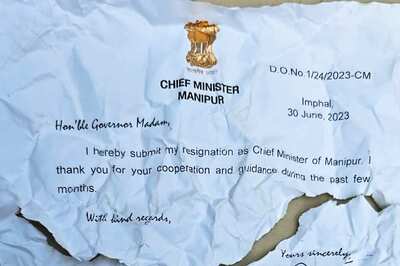 CHIEF MINISTER
MANIPUR
D.O.No.1/24/2023-CM
Imphal,
30 June, 2023
Hon'ble Governor Madam,
I hereby submit my resignation as Chief Minister of Manipur. I
thank you for your cooperation and guidance during the past few
months.
With kind regards,
Yours sincerely,